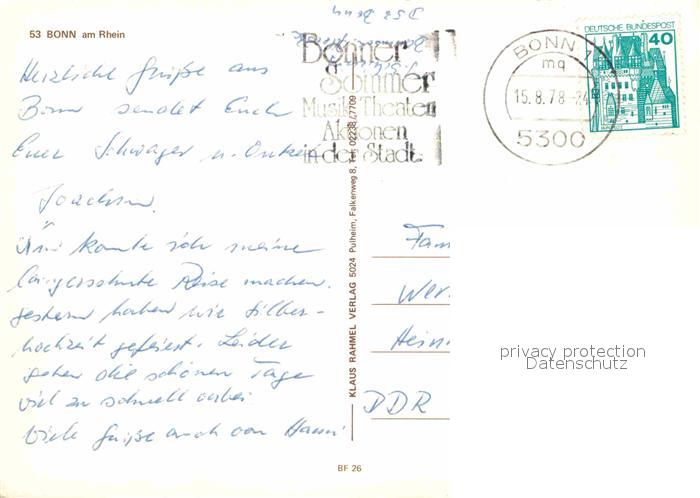 53 BONN am Rhein
Herzliche Grüße aus
Bonn sendet Euch
Euer Schwager u. Onkel
Joachim.
konnte ich meine
langersehnte Reise machen.
gestern haben wir Silber-
hochzeit gefeiert. Leider
gehen die schönen Tage
viel zu schnell vorbei
Viele Grüße auch von Hanni
Bonner
Sommer
Musik Theater
Aktionen
in der Stadt
BONN 1
mq
15.8.78-24
5300
DEUTSCHE BUNDESPOST
40
KLAUS RAHMEL VERLAG 5024 Pulheim, Falkenweg 8, Tel. 02238/7709
Fam
Wer
Hein
DDR
privacy protection
Datenschutz
BF 26